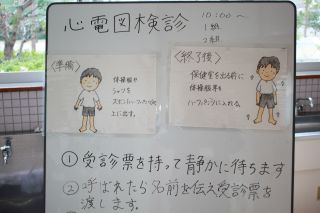 心電図検診
10:00〜
1組
2組
〈準備〉
体操服や
シャツを
ズボン・ハーフパンツから
上に出す。
〈終了後〉
保健室を出る前に
体操服等を
ハーフパンツに入れる。
①受診票を持って静かに待ちます
②呼ばれたら名前を伝え受診票を
渡します。